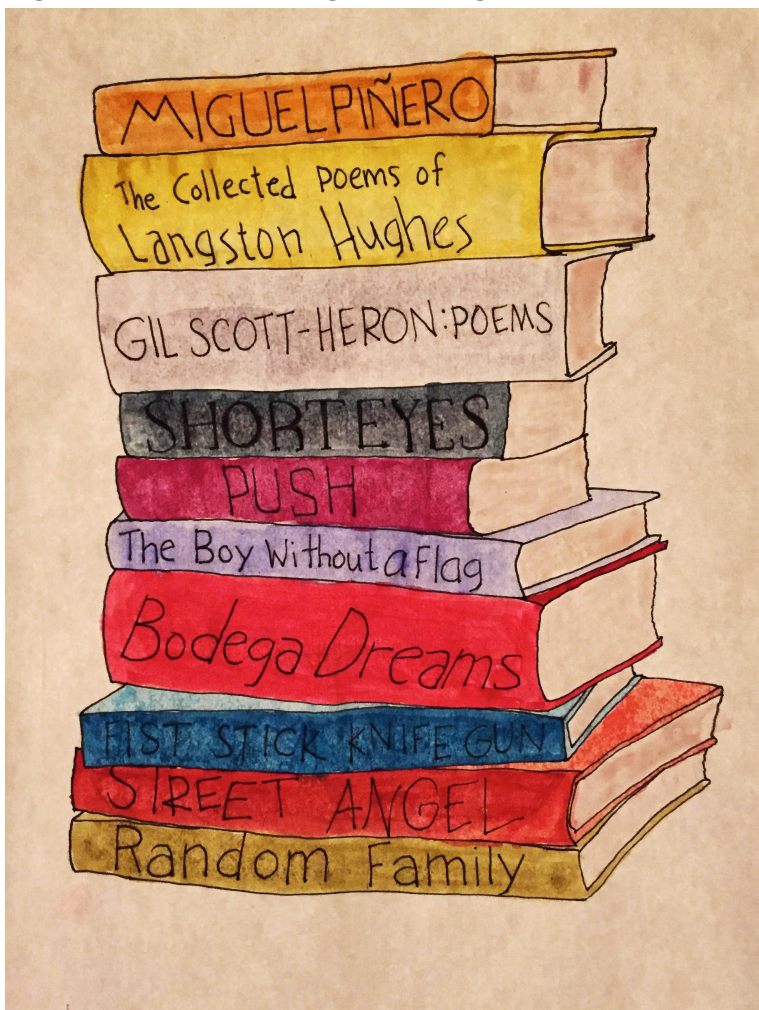 MIGUEL PIÑERO
The Collected Poems of
Langston Hughes
GIL SCOTT-HERON: POEMS
SHORT EYES
PUSH
The Boy Without a Flag
Bodega Dreams
FIST STICK KNIFE GUN
STREET ANGEL
Random Family